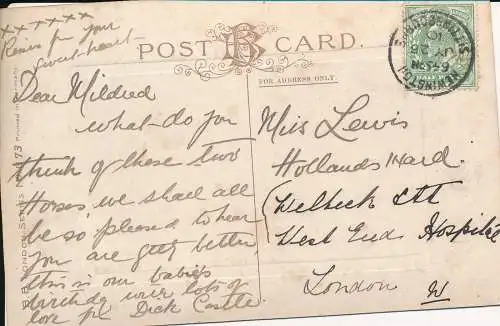 xxxxxx
Kisses for your
sweetheart
POST CARD.
FOR ADDRESS ONLY.
Dear Mildred
what do you
think of these two
Horses, we shall all
be so pleased to hear
you are getting better,
this is our babies
birthday with lots of
love from Dick Castle
Miss Lewis
Hollands Ward.
Welbeck Stt
West End Hospital
London W
B.B. LONDON SERIES No. 173